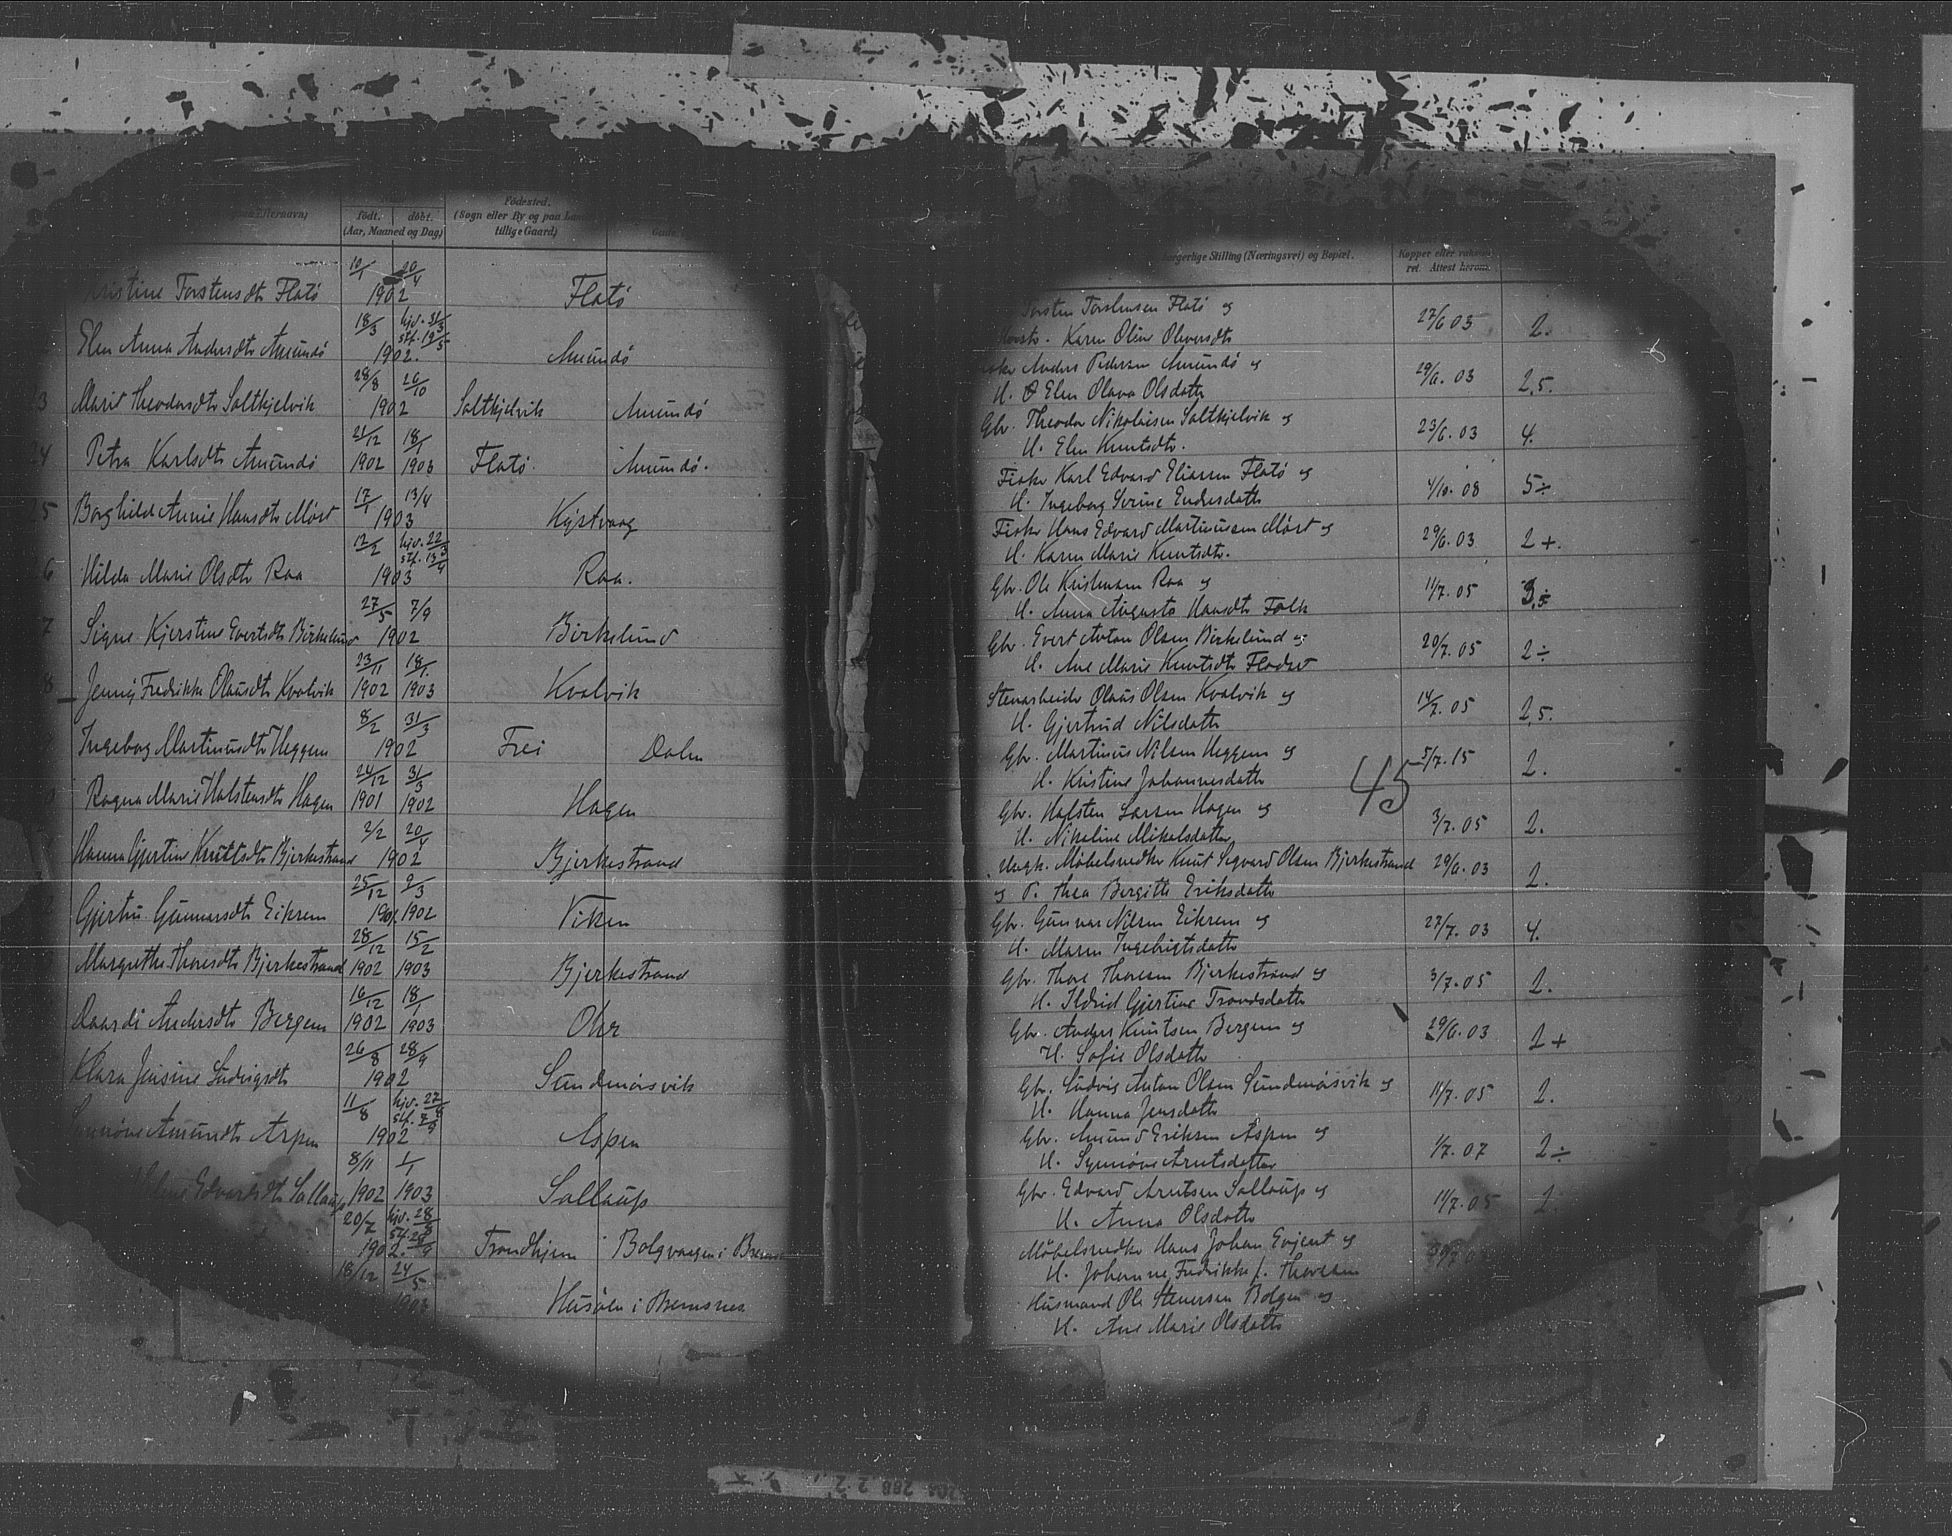 Efternavn)
født.
døbt.
(Aar, Maaned og Dag)
Fødested.
(Sogn eller By og paa
tillige Gaard)
Torstensdtr Flatö
10/1 20/4
1902
Flatö
Elen Anna Andersdtr Amundö
18/3 hjd. 31/3
stf. 19/5
1902.
Amundö
3 Marit Theodorsdtr Saltkjelvik
28/8 26/10
1902
Saltkjelvik Amundö
24 Petra Karlsdtr Amundö
21/12 18/1
1902 1903
Flatö. Amundö.
25 Borghild Annie Hansdtr Möst
17/1 13/4
1903
Kyrtvaag
6 Hilda Marie Olsdtr Raa
12/2 hjd. 22/3
stf. 13/4
1903
Raa.
7 Signe Kjerstine Evertsdtr Birkelund
27/5 7/9
1902
Birkelund
8 Jenny Fredrikke Olausdtr Kvalvik
23/11 18/1
1902 1903
Kvalvik
Ingeborg Martinusdtr Heggem
8/2 31/3
1902
Frei Dalen
Ragna Marie Halstensdtr Hagen
24/12 31/3
1901 1902
Hagen
Hanna Gjertine Knutsdtr Bjerkestrand
2/2 20/4
1902
Bjerkestrand
Gunnarsdtr Eikrem
25/12 9/3
1901 1902
Viken
Margrethe Thoresdtr Bjerkestrand
28/12 15/2
1902 1903
Bjerkestrand
Andersdtr Bergem
16/12 18/1
1902 1903
Klara Jensine Ludvigsdtr
26/8 28/9
1902
Sundmörsvik
Amundsdtr Aspen
11/8 hjd. 27/8
stf. 7/9
1902
Aspen
Edvardsdtr Sallaup
8/11 1/1
1902 1903
Sallaup
20/7 hjd. 28/8
stf. 28/9
1902.
Trondhjem Bolgvaagen i
18/12 24/5
1903
Husöen i Bremsnes
Stilling (Næringsvei) og Bopæl.
Kopper eller
Attest herom.
Torsten Torstensen Flatö og
Karen Oline Oliversdtr
27/6 03 2.
Anders Pedersen Amundö og
H. Elen Olava Olsdatter
29/6. 03 2,5.
Gbr. Theodor Nikolaisen Saltkjelvik og
H. Elen Knutsdtr.
23/6. 03 4.
Fisker Karl Edvard Eliassen Flatö og
H. Ingeborg Serine Endresdatter
4/10. 08 5÷
Fisker Hans Edvard Martinussen Möst og
H. Karen Marie Knutsdtr.
29/6. 03 2+.
Gbr. Ole Kristensen Raa og
H. Anna Augusta Hansdtr Falk
11/7. 05
Gbr. Evert Anton Olsen Birkelund og
H. Ane Marie Knutsdtr
20/7. 05 2÷
Stenarbeider Olaus Olsen Kvalvik og
H. Gjertrud Nilsdatter
14/7. 05 2,5.
Gbr. Martinus Nilsen Heggem og
H. Kristine Johannesdatter
5/7. 15 2.
45
Gbr. Halsten Larsen Hagen og
H. Nikoline Mikalsdatter
3/7. 05 2.
Ungk. Möbelsnedker Knut Sigvard Olsen Bjerkestrand
og P. Thea Bergitte Eriksdatter
29/6. 03 2.
Gbr. Gunnar Nilsen Eikrem og
H. Maren Ingebrigtsdatter
27/7. 03 4.
Gbr. Thore Thoresen Bjerkestrand og
H. Ildrid Gjertine Trondsdatter
3/7. 05 2.
Gbr. Anders Knutsen Bergem og
H. Sofie Olsdatter
29/6. 03 2+
Gbr. Ludvig Anton Olsen Sundmörsvik og
H. Hanna Jensdatter
11/7. 05 2.
Gbr. Amund Eriksen Aspen og
H. Synnöve Arntsdatter
1/7. 07 2÷
Gbr. Edvard Arntsen Sallaup og
H. Anna Olsdatter
11/7. 05 2.
Möbelsnedker Hans Johan Evjent og
H. Johanne Fredrikke f. Thoresen
Husmand Ole Stenersen Bolgen og
H. Ane Marie Olsdatter